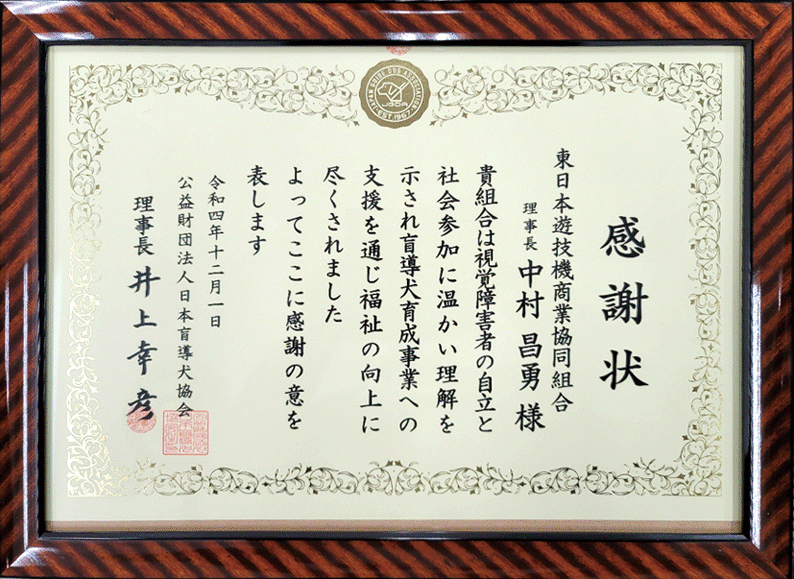 JAPAN GUIDE DOG ASSOCIATION
JGDA
EST.1967
感謝状
東日本遊技機商業協同組合
理事長 中村昌勇様
貴組合は視覚障害者の自立と
社会参加に温かい理解を
示され盲導犬育成事業への
支援を通じ福祉の向上に
尽くされました
よってここに感謝の意を
表します
令和四年十二月一日
公益財団法人日本盲導犬協会
理事長 井上幸彦